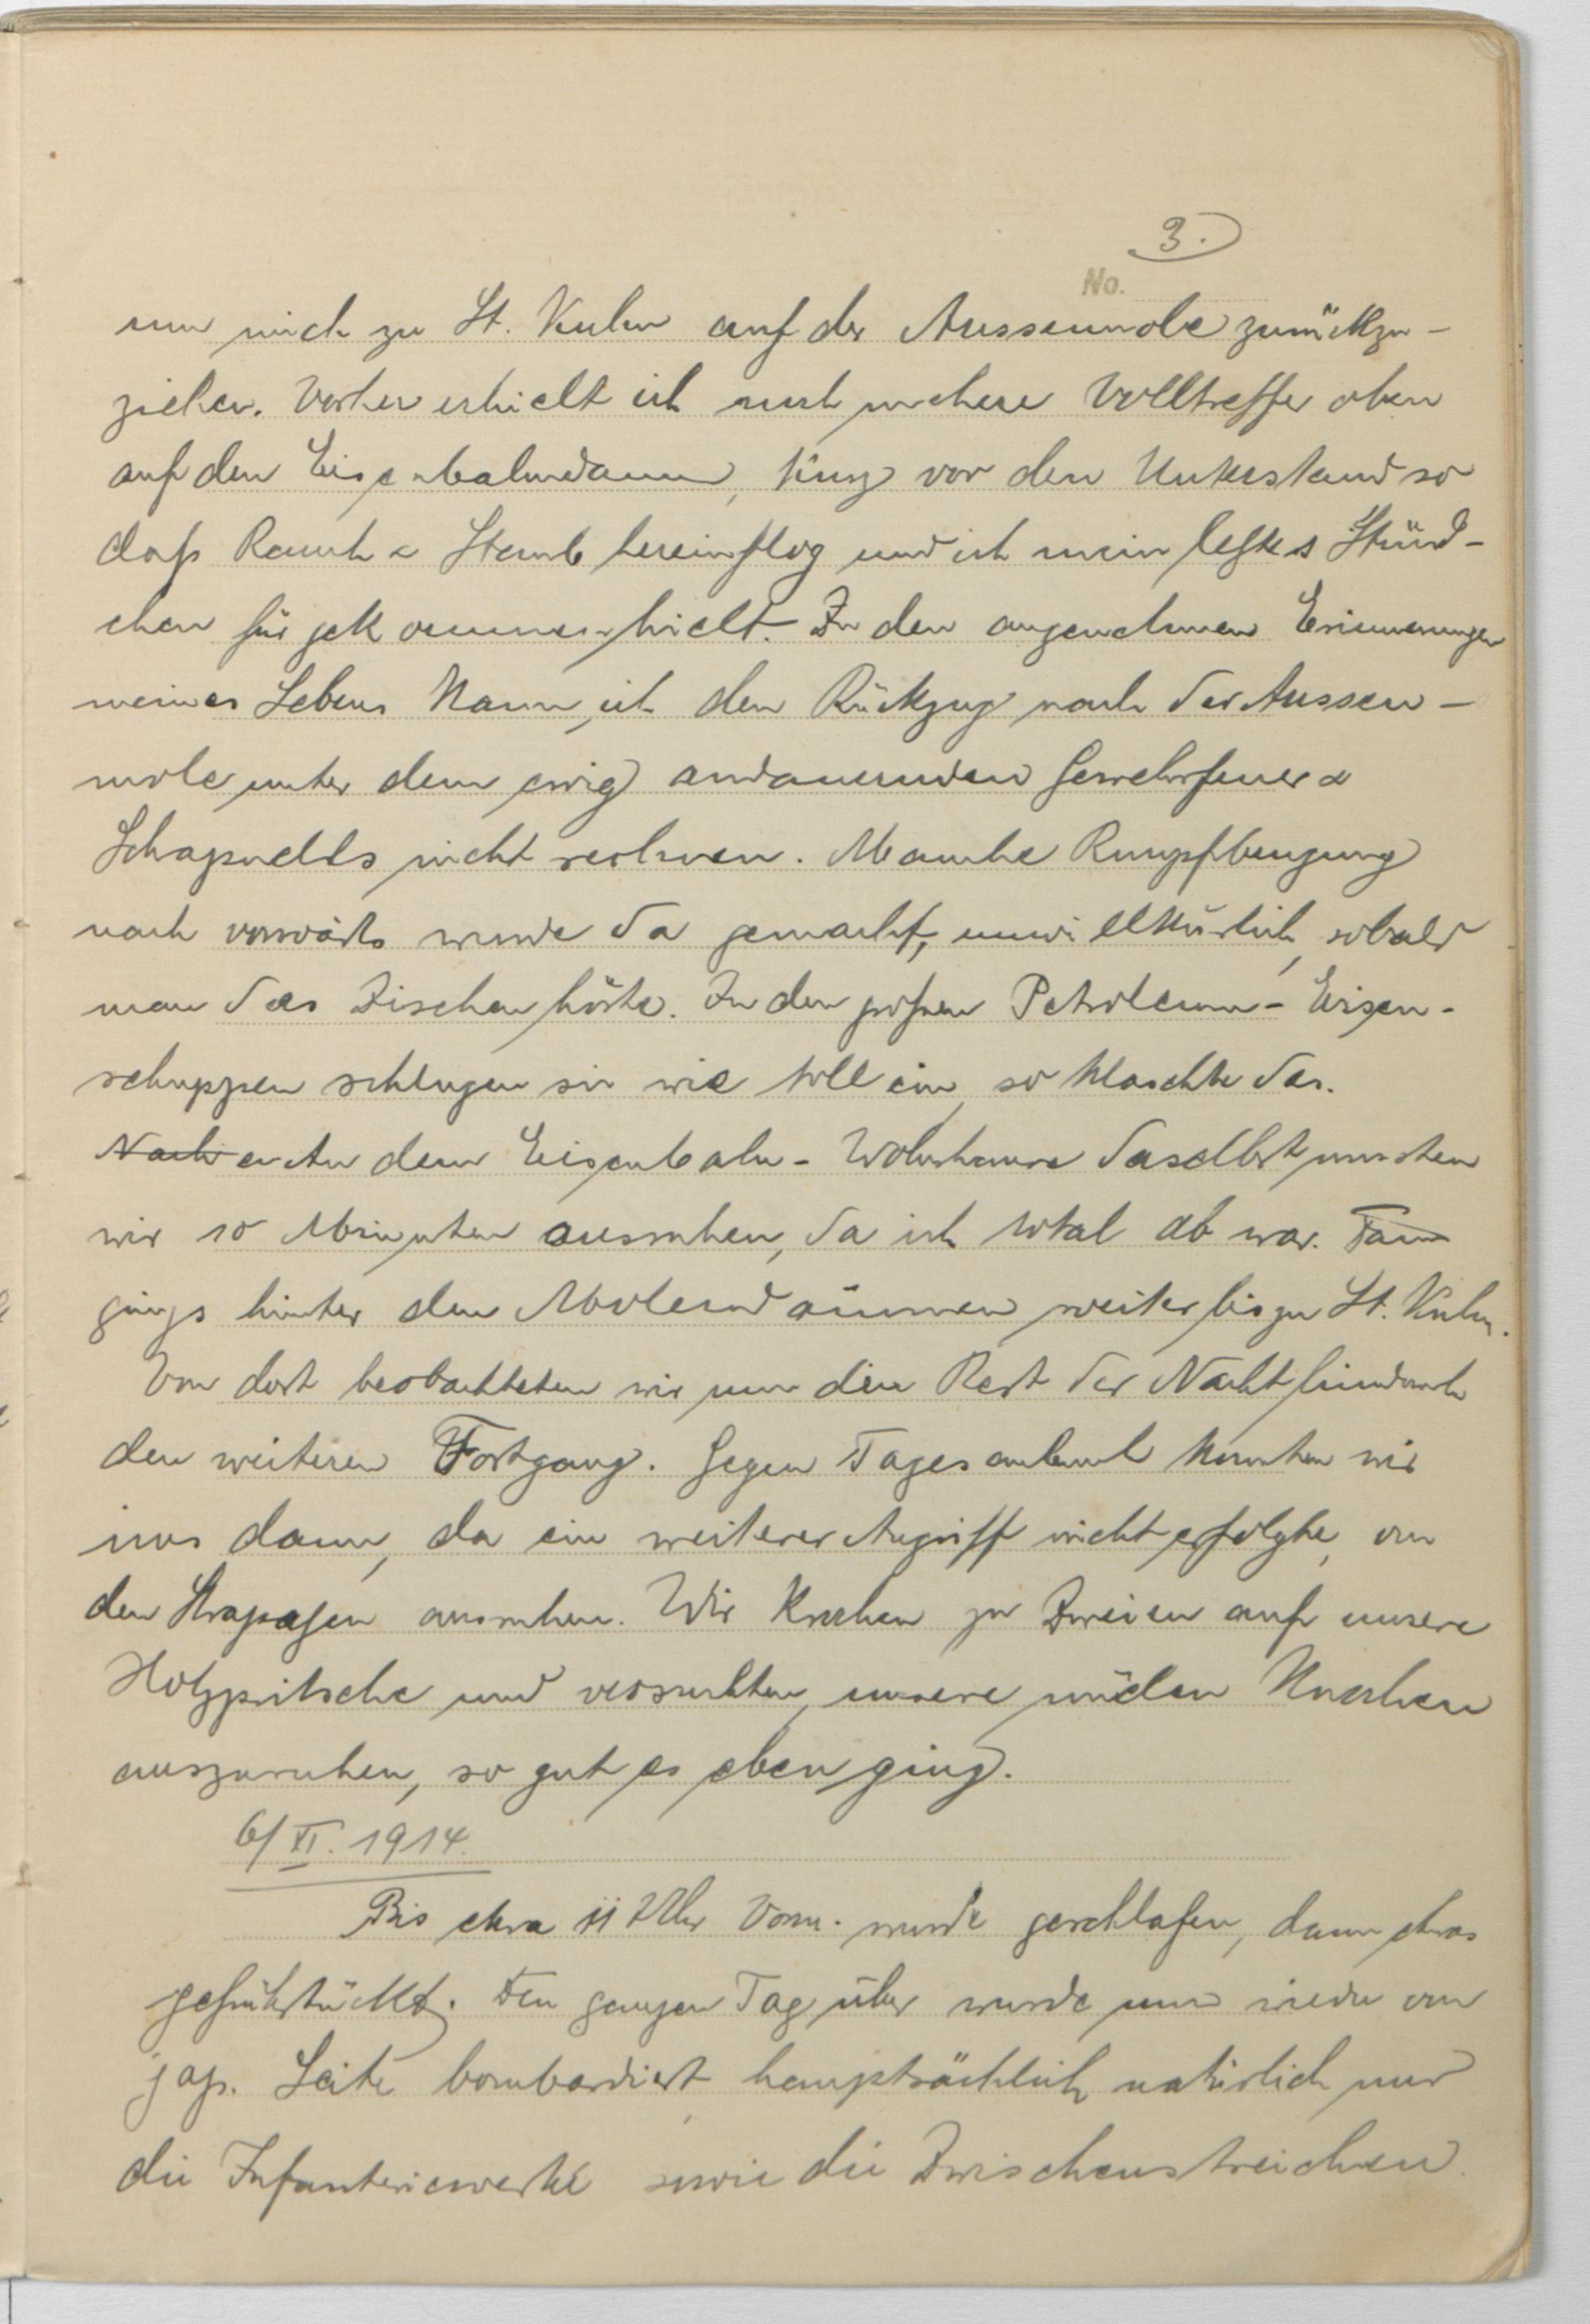 3.
No.
um mich zu St. Kuhn auf der Aussenmole zurückzu-
ziehen. Vorher erhielt ich noch mehere Volltreffer oben
auf den Eisenbahndamm, kurz vor den Unterstand so
daß Rauch & Staub hereinflog und ich mein letztes Stünd-
chen für gekommen hielt. Zu den angenehmen Erinnerungen
meines Lebens kann ich den Rückzug nach der Aussen-
mole unter dem ewig andauernden Gewehrfeuer &
Schrapnells nicht rechnen. Manche Rumpfbeugung
nach vorwärts wurde da gemacht, unwillkürlich, sobald
man das Zischen hörte. In den großen Petroleum-Eisen-
schuppen schlugen sie wie toll ein, so klaschte das.
Nach An dem Eisenbahn-Wohnhause daselbst mussten
wir 10 Minuten ausruhen, da ich total ab war. Dann
gings hinter den Molendämmen weiter bis zu St. Kuhn.
Von dort beobachteten wir nun den Rest der Nacht hindurch
den weiteren Fortgang. Gegen Tagesanbruch konnten wir
uns dann, da ein weiterer Angriff nicht erfolgte, von
den Strapazen ausruhen. Wir krochen zu Zweien auf unsere
Holzpritsche und versuchten, unsere müden Knochen
auszuruhen, so gut es eben ging.
6/XI. 1914.
Bis etwa 11 Uhr Vorm. wurde geschlafen, dann etwas
gefrühstückt. Den ganzen Tag über wurde nun wieder von
jap. Seite bombardiert, hauptsächlich natürlich nur
die Infanteriewerke sowie die Zwischenstreichen